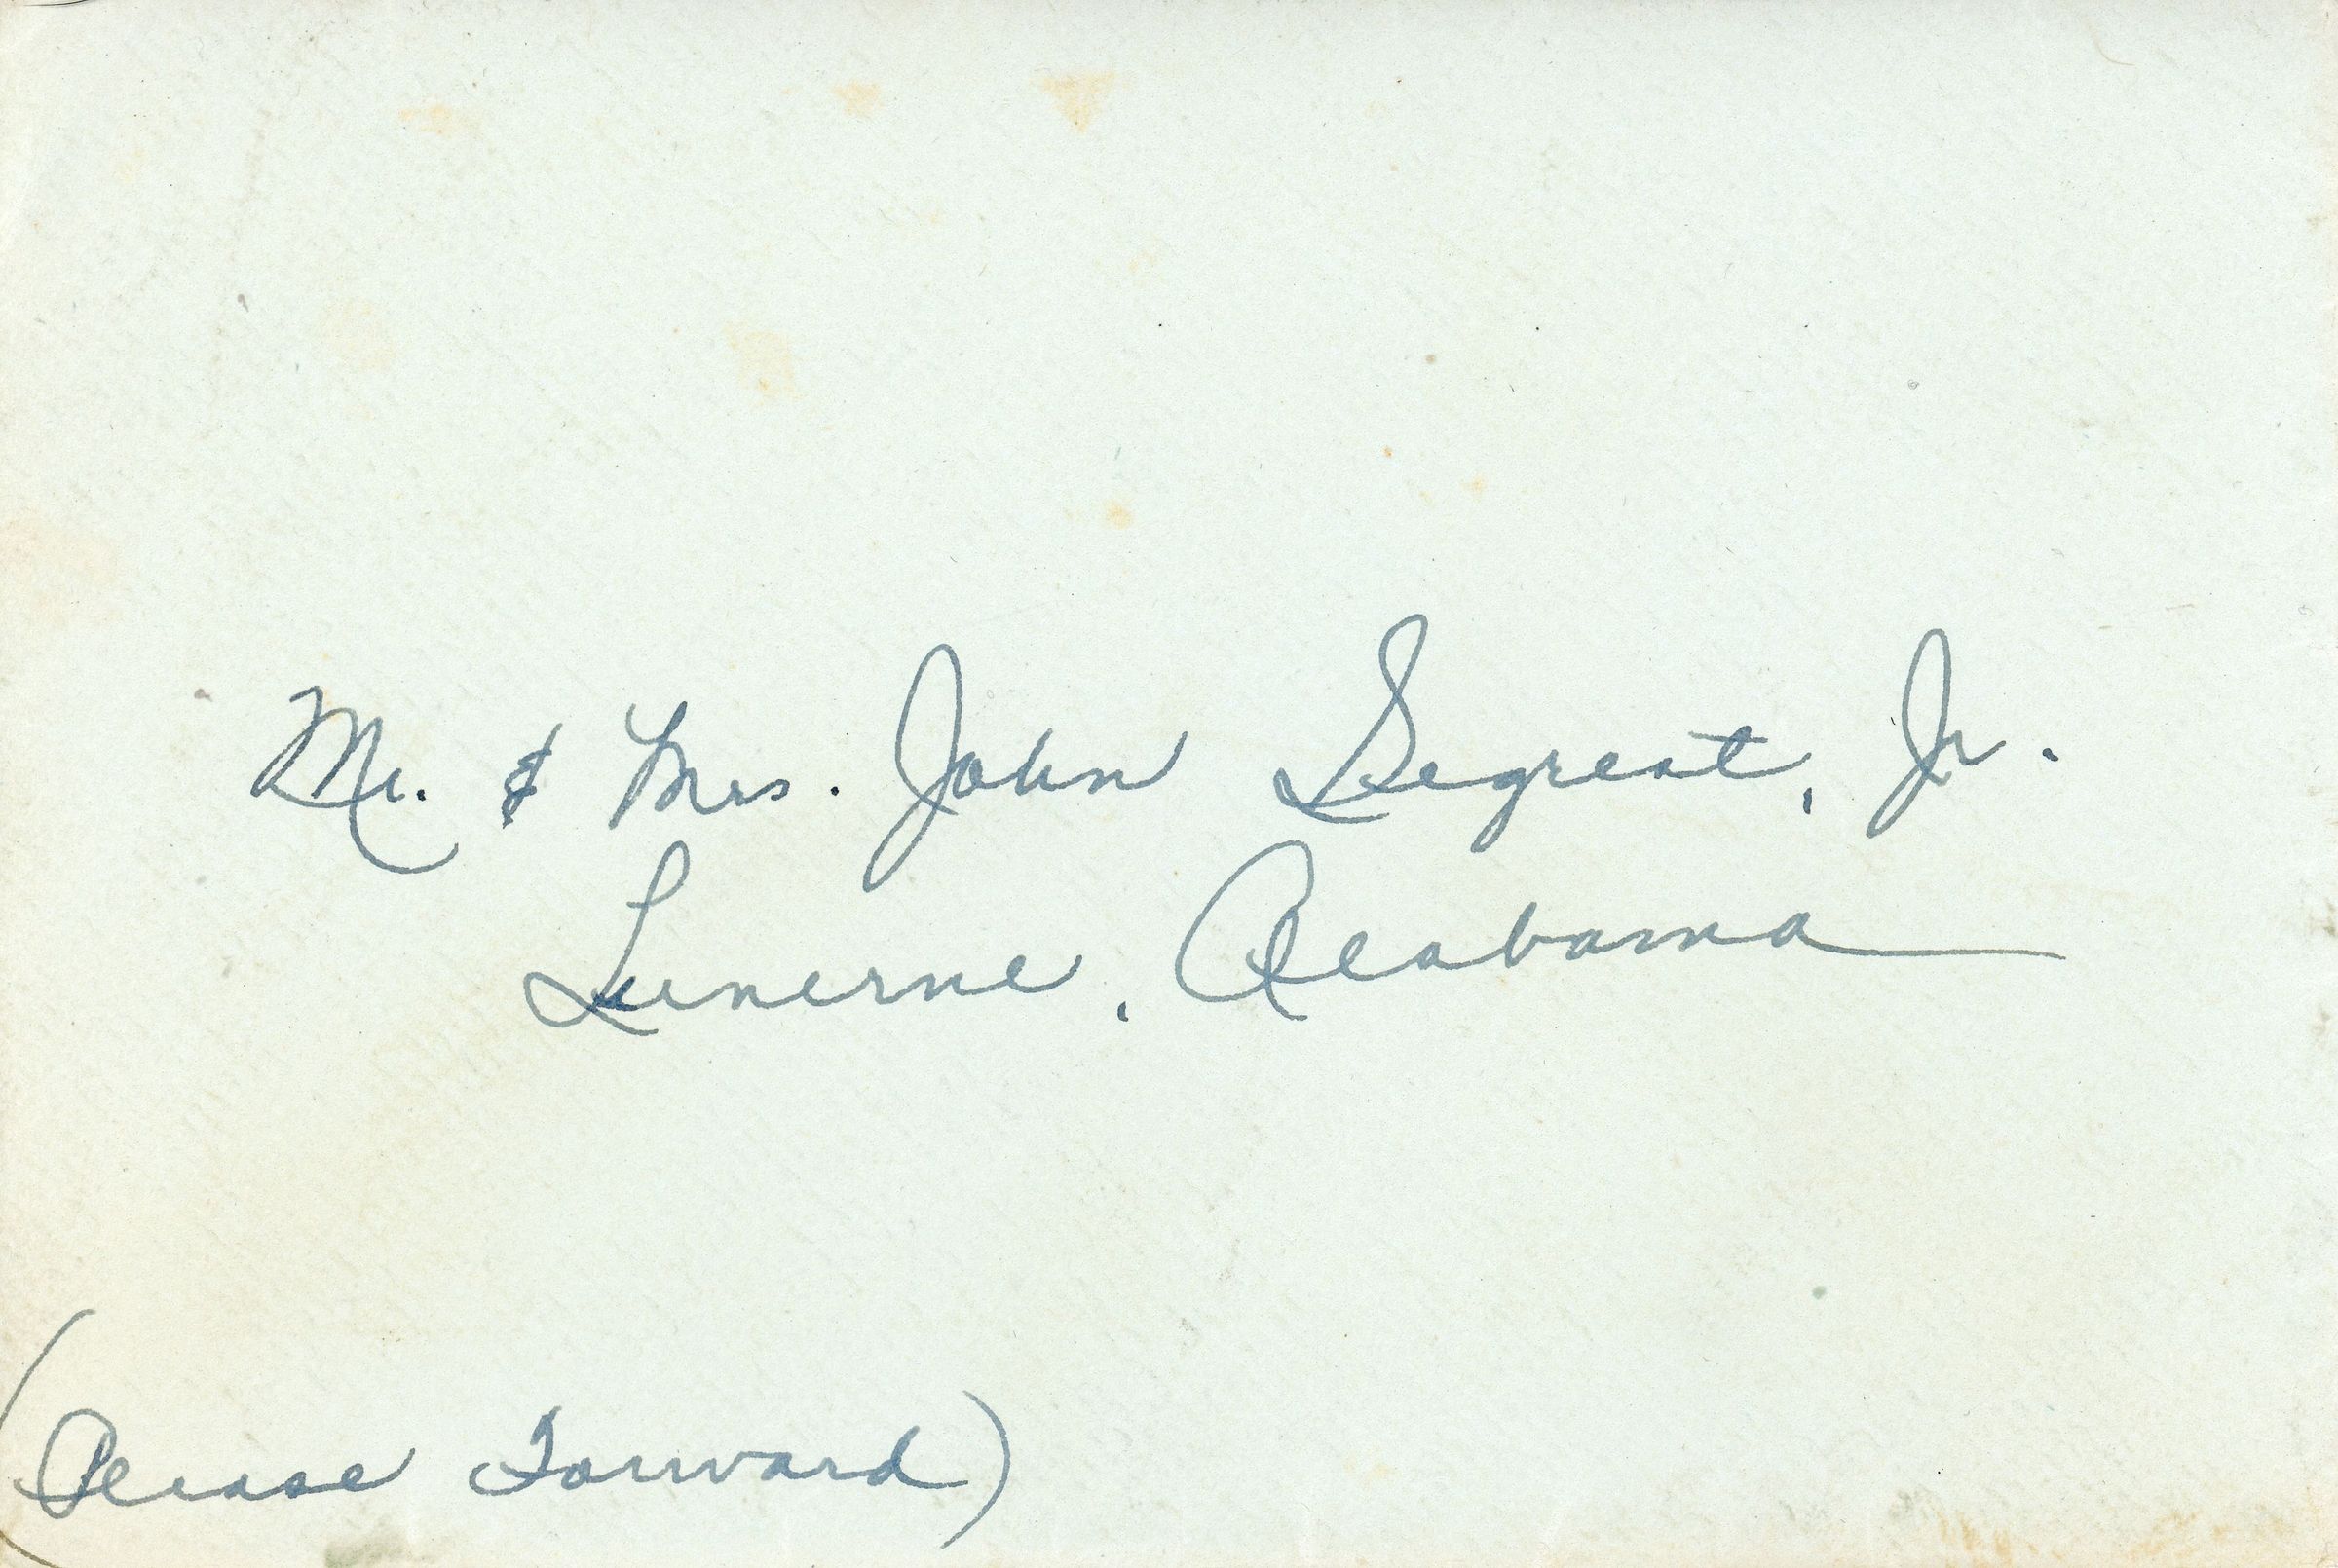 Mr. & Mrs. John Segrest, Jr.
Luverne, Alabama
(Please Forward)